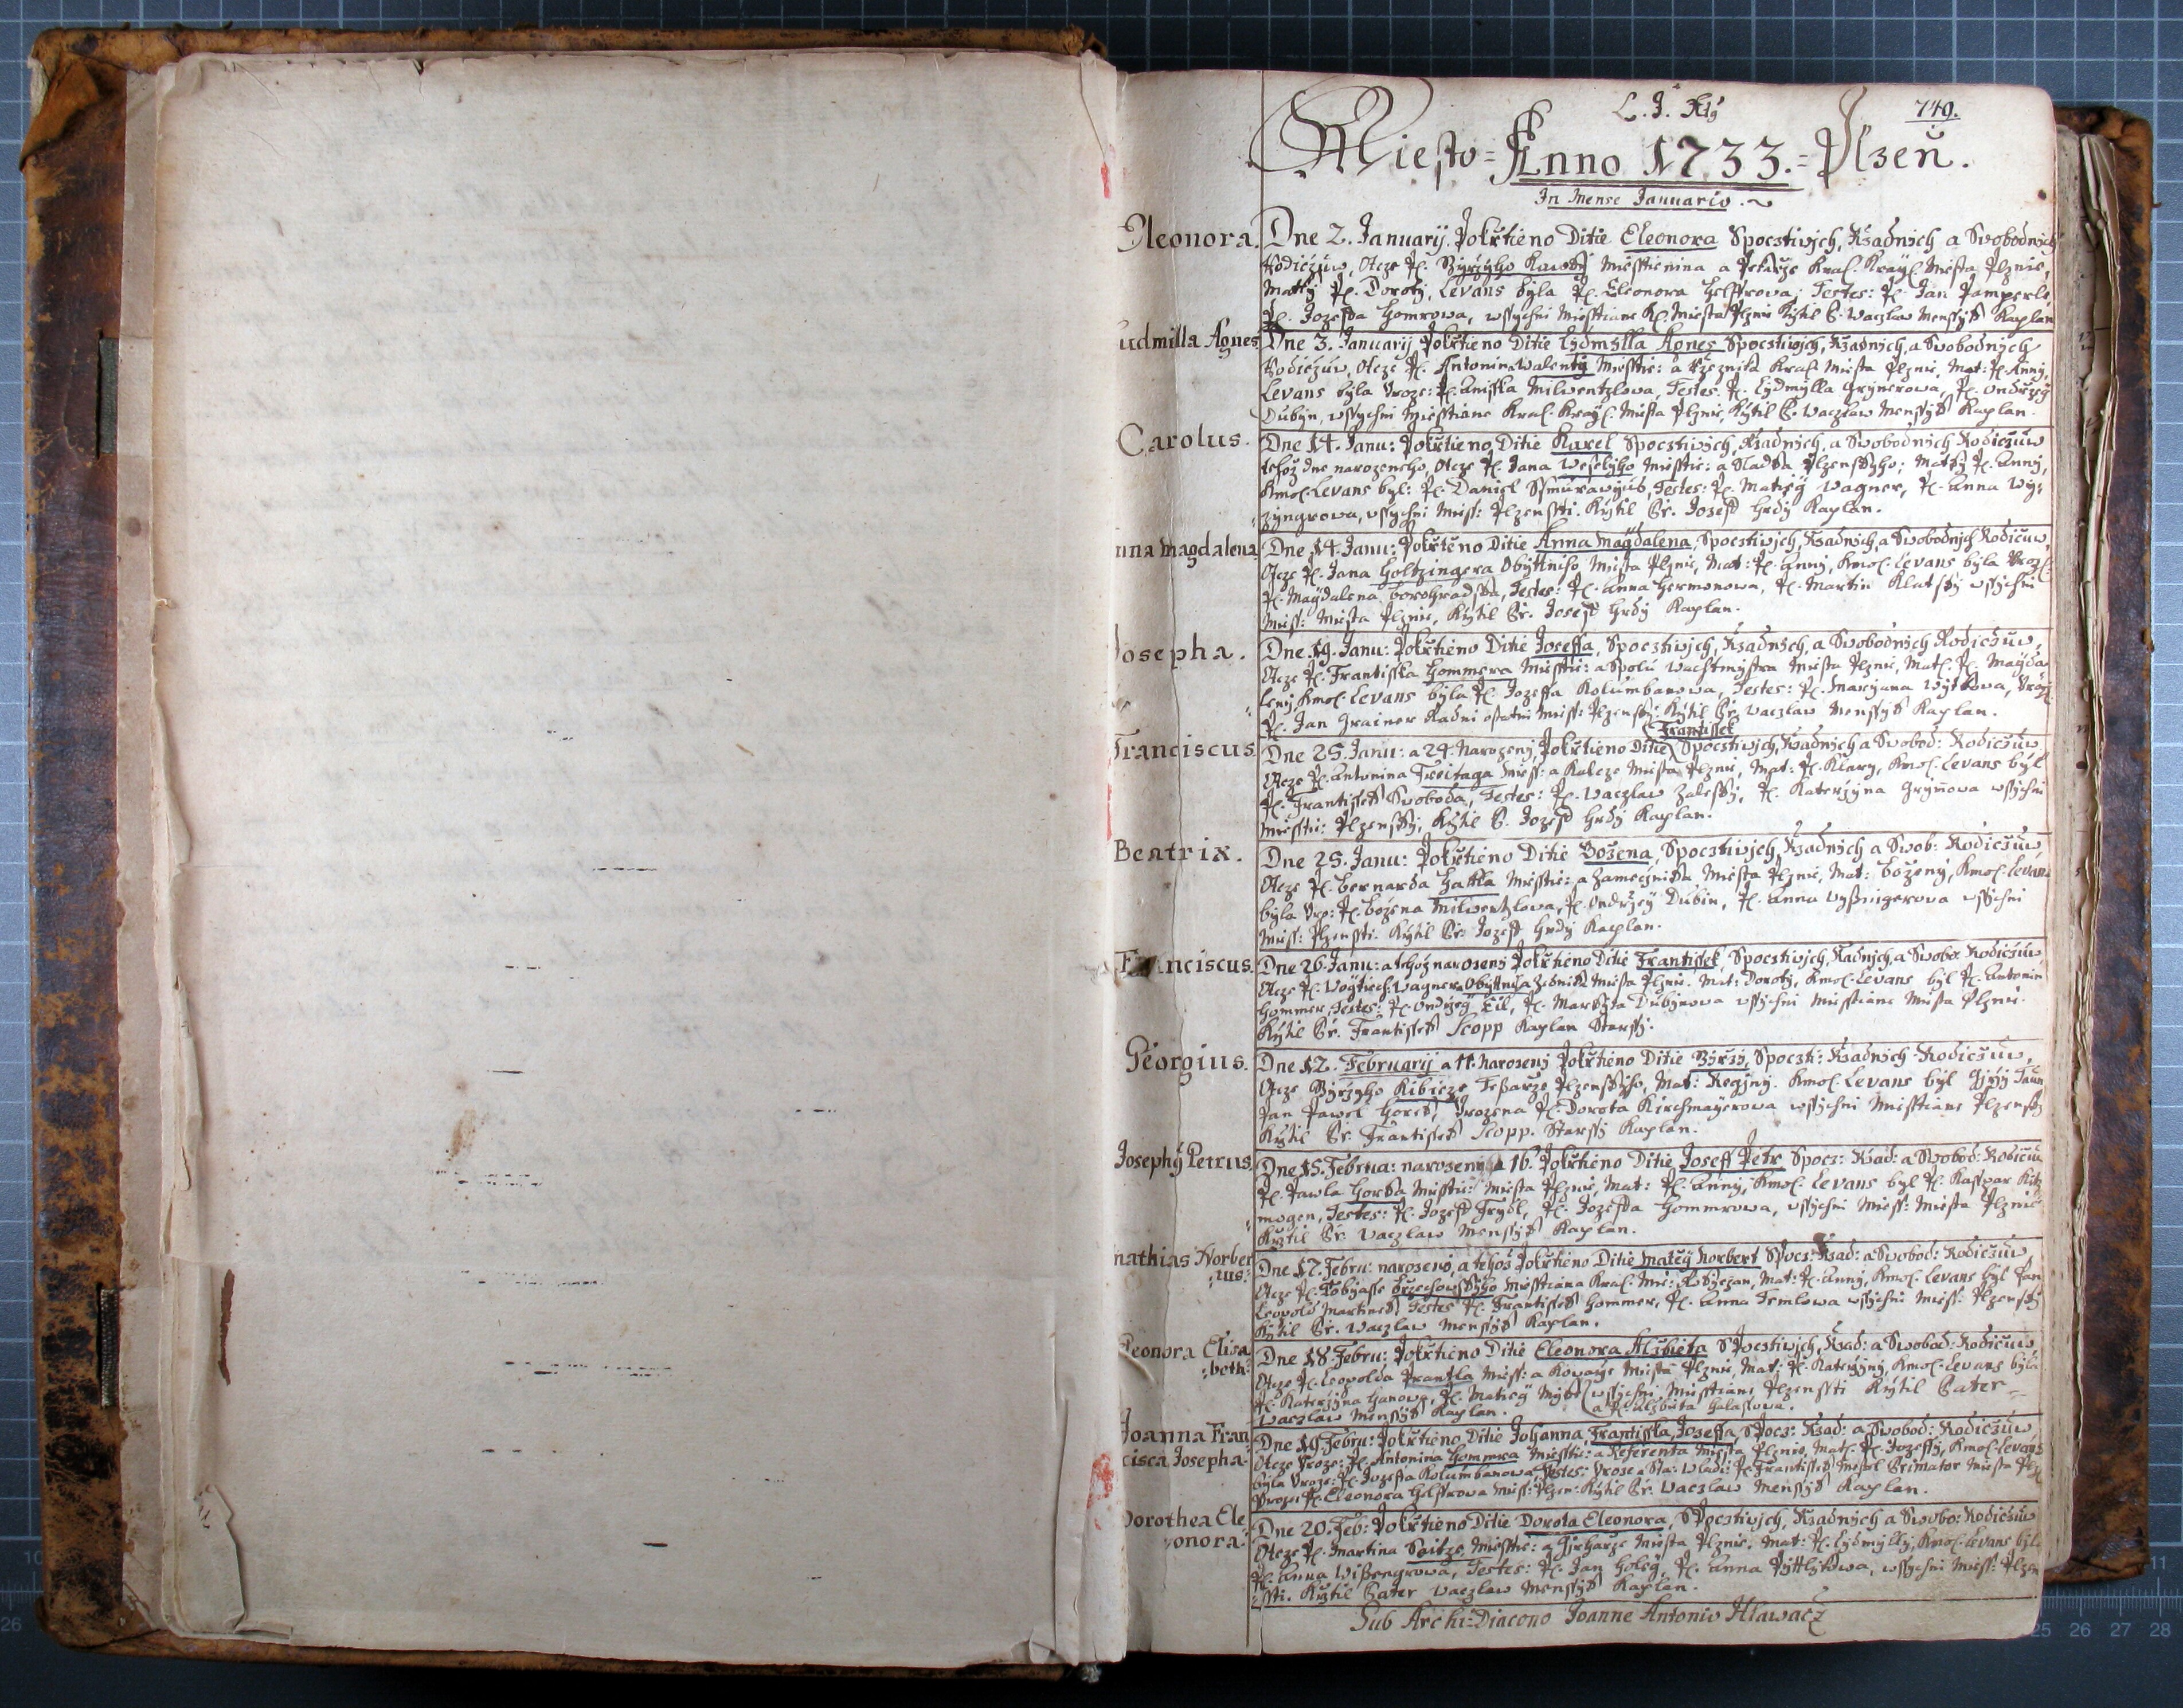 L. J.
749.
Miesto = Anno 1733. = Plzen.
In Mense Januario.
Eleonora.
Dne 2. Januarij. Pokrtieno Ditie Eleonora Spocztiwjch, Kzadnich a Swobodnich
Rodiczuw, Otcze P. Miesstienina a Pekarze Kral. Krayl. Miesta Plznie,
Matky P. Doroty, Levans byla P. Eleonora Helffrowa, Testes: P. Jan Pamperle,
P. Jozeffa Homrowa, wssychni Miesstiane Kl. Miesta Plznie Krztil P. Waczlaw Menssyk Kaplan
udmilla Agnes
Dne 3. Januarij Pokrtieno Ditie Lydmylla Agnes Spocztiwych, Kzadnych, a Swobodnych
Rodiczuw, Otcze P. Antonina Walenty Miesstie: a Rzeznika Kral. Miesta Plznie, Mat: P. Anny,
Levans byla Uroze: P. Anisska Milwentzlowa, Testes P. Lydmylla Grynerowa, P. Ondrzeg
Dubyn, wssychni Miesstiane Kral. Krayl. Miesta Plznie, Krztil P. Waczlaw Menssyk Kaplan.
Carolus.
Dne 14. Janu: Pokrtieno Ditie Karel Spocztiwych, Kzadnych, a Swobodnich Rodiczuw
tehoz dne narozeneho, Otcze P. Jana Weselyho Miesstie: a Sladka Plzenskyho; Matky P. Anny,
Kmo. Levans byl: P. Daniel Testes: P. Matieg Wagner, P. Anna Wy=
zyngrowa, wssychni Miess: Plzenssti. Krztil Pr. Jozeff Hrdy Kaplan.
nna Magdalena
Dne 14. Janu: Pokrteno Ditie Anna Magdalena, Spocztiwjch, Kzadnich, a Swobodnych Rodicuw,
Otcze P. Jana Holtzingera Obyttniho Miesta Plznie, Mat: P. Anny, Kmo. Levans byla Uroz:
P. Magdalena Testes: P. Anna Hermonowa, P. Martin Klatsky wssychni
Miess: Miesta Plznie, Krztil Pr. Joseff Hrdy Kaplan.
Josepha.
Dne 19. Janu: Pokrtieno Ditie Joseffa, Spocztiwjch, Kzadnich, a Swobodnich Rodiczuw,
Otcze P. Frantisska Hommera Miesstie: a Spolu Wachtmystra Miesta Plznie, Mat. P. Magda
leny, Kmo. Levans byla P. Jozeffa Kolumbanowa, Testes: P. Maryana Uroz
P. Jan Grainer Radni ostatni Miess: Plzenssky Krztil Pr. Waczlaw Menssyk Kaplan.
Franciscus
Frantissek
Dne 25. Janu: a 24. Narozeny, Pokrtieno Ditie Spocztiwjch, Kzadnich a Swobod: Rodiczuw
Otcze P. Antonina Freitaga Miess: a Miesta Plznie, Mat: P. Klary, Kmo. Levans byl
P. Frantissek Swoboda, Testes: P. Waczlaw Zalessky, P. Katerzyna wssychni
Miesstie: Plzenssky, Krztil P. Jozeff Hrdy Kaplan.
Beatrix.
Dne 25. Janu: Pokrtieno Ditie Bozena, Spocztiwjch, Kzadnich a Swob: Rodiczuw
Otcze P. Bernarda Hattla Miesstie: a Zamecznika Miesta Plznie, Mat: Bozeny, Kmo. Levans
byla Uro: P. Bozena Milwentzlowa, P. Ondrzeg Dubin, P. Anna Wyßnigerowa wssychni
Miess: Plzenssti. Krztil Pr. Jozeff Hrdy Kaplan.
Franciscus.
Dne 26. Janu: a tehoz narozeny Pokrtieno Ditie Frantissek, Spocztiwjch, Kadnich, a Swobo: Rodiczuw
Otcze P. Wogtiech: Wagnera Obyttnika Miesta Plznie. Mat: Doroty, Kmo. Levans byl P. Antonin
Hommer, Testes: P. Ondrzeg P. Markyta Dubynowa wssychni Miesstiane Miesta Plznie.
Krztil Pr. Frantissek Scopp Kaplan Starssy.
Georgius.
Dne 12. Februarij a 11. Narozeny Pokrtieno Ditie Spoczti: Kzadnich Rodiczuw,
Otcze Kibicze Plzenskyho, Mat: Regyny. Kmo. Levans byl
Jan Pawel Horck, Urozena P. Dorota Kirchmayerowa wssychni Miesstiane Plzenssky
Krztil Pr. Frantissek Scopp. Starssy Kaplan.
Josephy Petrus,
Dne 15. Februa: narozeny, a 16. Pokrtieno Ditie Joseff Petr Spocz: Kzad: a Swobod: Rodicuw
P. Pawla Horcka Miesstie: Miesta Plznie, Mat: P. Anny, Kmo. Levans byl P. Kasspar Kit
mogen, Testes: P. Jozeff Frydl, P. Jozeffa Hommrowa, wssychni Miess: Miesta Plznie
Krztil Pr. Waczlaw Menssyk Kaplan.
mathias Norber
tus:
Dne 17. Febru: narozeno, a tehoz Pokrtieno Ditie Mateg Norbert Spocz: Kzad: a Swobod: Rodiczuw
Otcze P. Tobyasse Brzechowskyho Miesstiana Kral. Mie: Mat: P. Anny, Kmo. Levans byl Pan
Leopold Martinek, Testes P. Frantissek Hommer, P. Anna Temlowa wssychni Miess: Plzenssky
Krztil Pr. Waczlaw Menssyk Kaplan.
Eleonora Elisa
beth:
Dne 18. Febru: Pokrtieno Ditie Eleonora Alzbieta Spocztiwjch, Kzad: a Swobod: Rodicuw,
Otcze P. Leopolda Prantla Miess: a Kowarze Miesta Plznie, Mat: P. Katerzyny, Kmo. Levans byla
P. Katerzyna Hanowa, P. Matieg wssychni Miesstiane Plzenssti Krztil Pater
Waczlaw Menssyk Kaplan. a P. Alzbieta Galassowa.
Joanna Fran
cisca Josepha.
Dne 19. Febru: Pokrtieno Ditie Johanna, Frantisska, Jozeffa, Spocz: Kzad: a Swobod: Rodiczuw,
Otcze Uroze: P. Antonina Hommra Miesstie: a Referenta Miesta Plznie, Mat: P. Jozeffy, Kmo. Levans
byla Uroze: P. Jozeffa Kolumbanowa, Testes: Uroze a Sta: Wladi: P. Frantissek Primator Miesta
Uroze P. Eleonora Helffrowa Miess: Plzen: Krztil Pr. Waczlaw Menssyk Kaplan.
Dorothea Ele
onora.
Dne 20. Feb: Pokrtieno Ditie Dorota Eleonora, Spocztiwjch, Kzadnych a Swobo: Rodiczuw
Otcze P. Martina Seitze, Miesstie: a Miesta Plznie, Mat: P. Lydmylly, Kmo. Levans byla
P. Anna Wißengrowa, Testes: P. Jan Holeg, P. Anna wssychni Miess: Plzen
ssti. Krztil Pater Waczlaw Menssyk Kaplan.
Sub Archi-Diacono Joanne Antonio Hlawacz